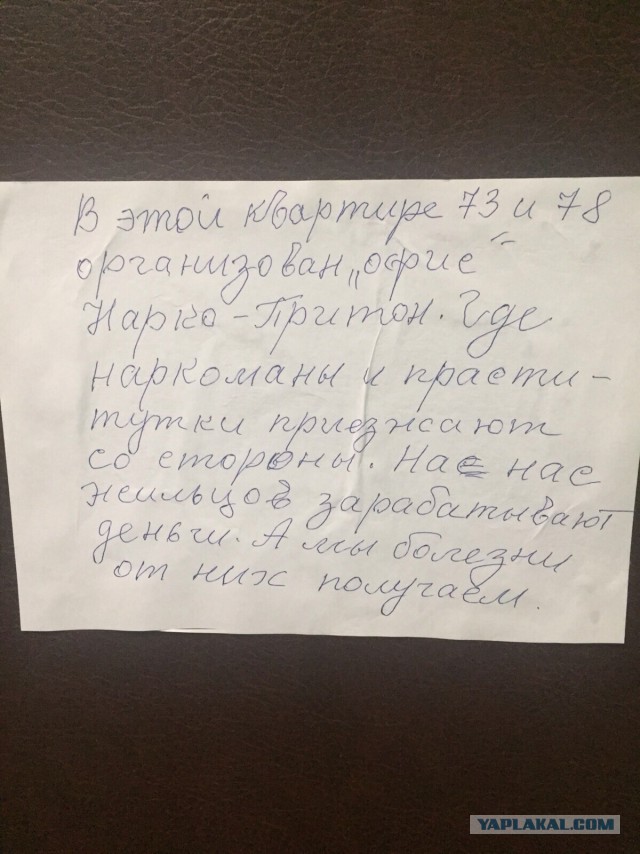 В этой квартире 73 и 78
организован „офис“
Нарко-Притон. Где
наркоманы и прасти-
тутки приезжают
со стороны. На нас
жильцов зарабатывают
деньги. А мы болезни
от них получаем.
YAPLAKAL.COM